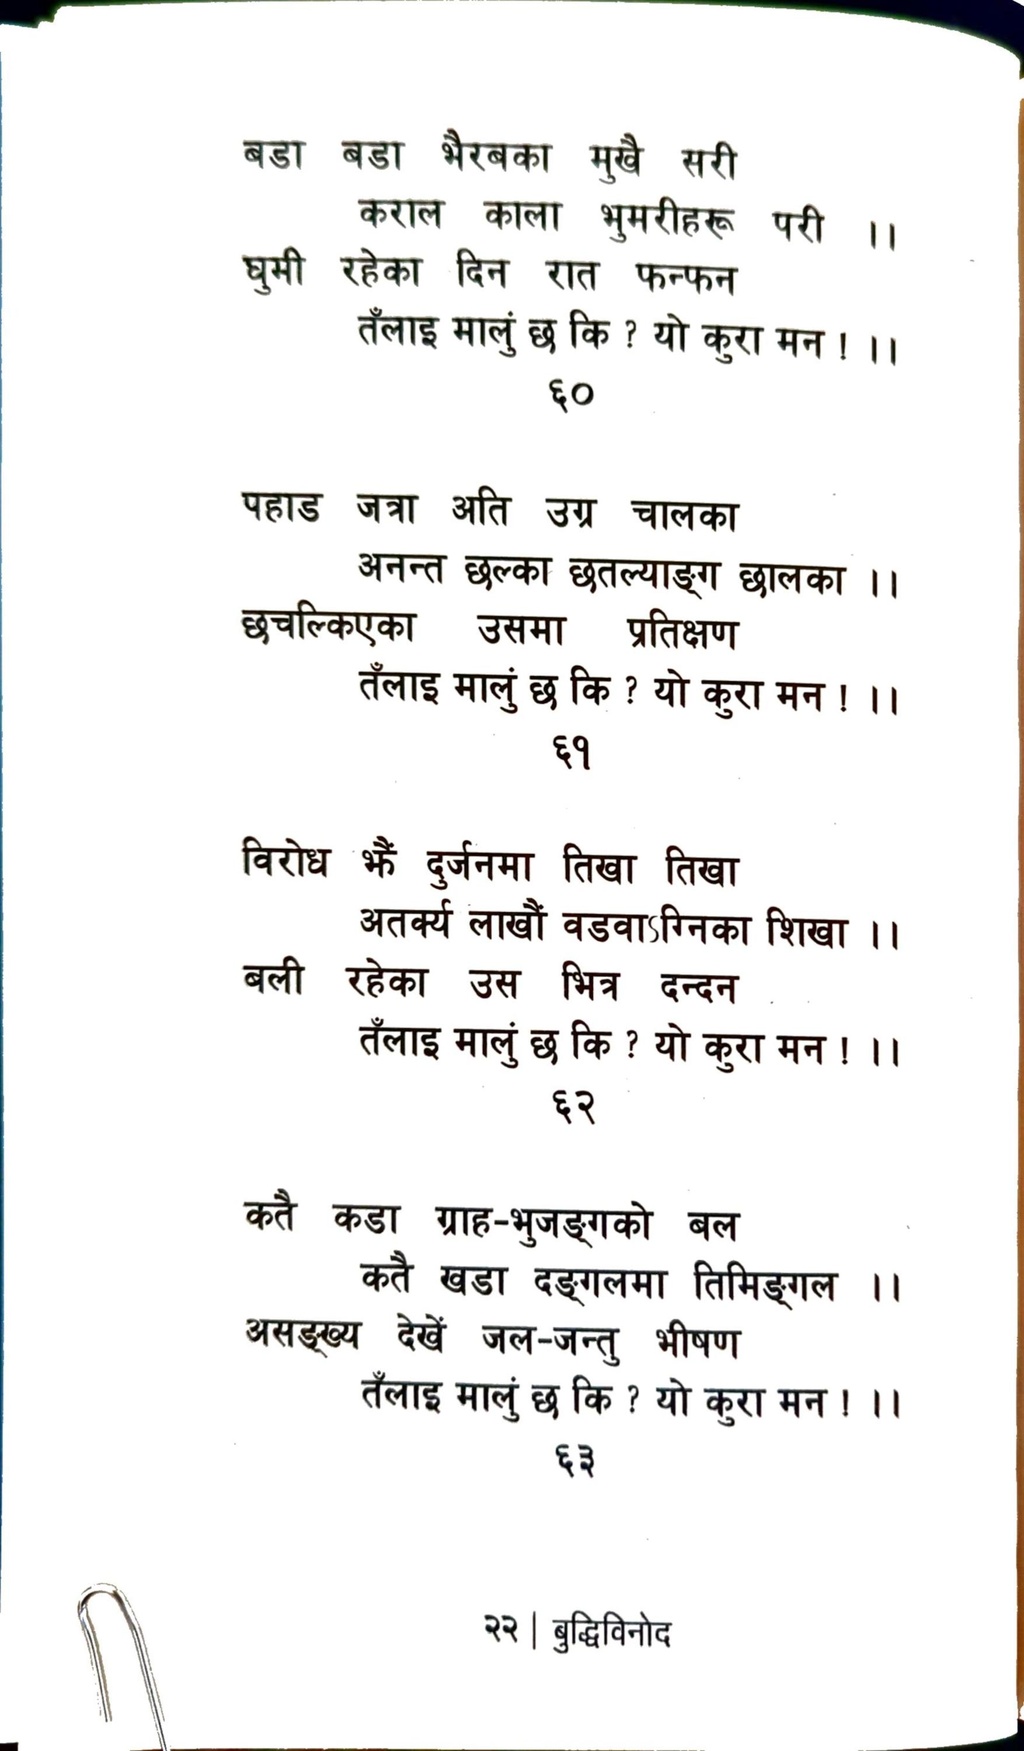 बडा बडा भैरबका मुखै सरी
कराल काला भुमरीहरू परी ।।
घुमी रहेका दिन रात फन्फन
तँलाइ मालुं छ कि ? यो कुरा मन ! ।।
६०
पहाड जत्रा अति उग्र चालका
अनन्त छल्का छतल्याङ्ग छालका ।।
छचल्किएका उसमा प्रतिक्षण
तँलाइ मालुं छ कि ? यो कुरा मन ! ।।
६१
विरोध झैं दुर्जनमा तिखा तिखा
अतर्क्य लाखौं वडवाऽग्निका शिखा ।।
बली रहेका उस भित्र दन्दन
तँलाइ मालुं छ कि ? यो कुरा मन ! ।।
६२
कतै कडा ग्राह-भुजङ्गको बल
कतै खडा दङ्गलमा तिमिङ्गल ।।
असङ्ख्य देखें जल-जन्तु भीषण
तँलाइ मालुं छ कि ? यो कुरा मन ! ।।
६३
२२ | बुद्धिविनोद